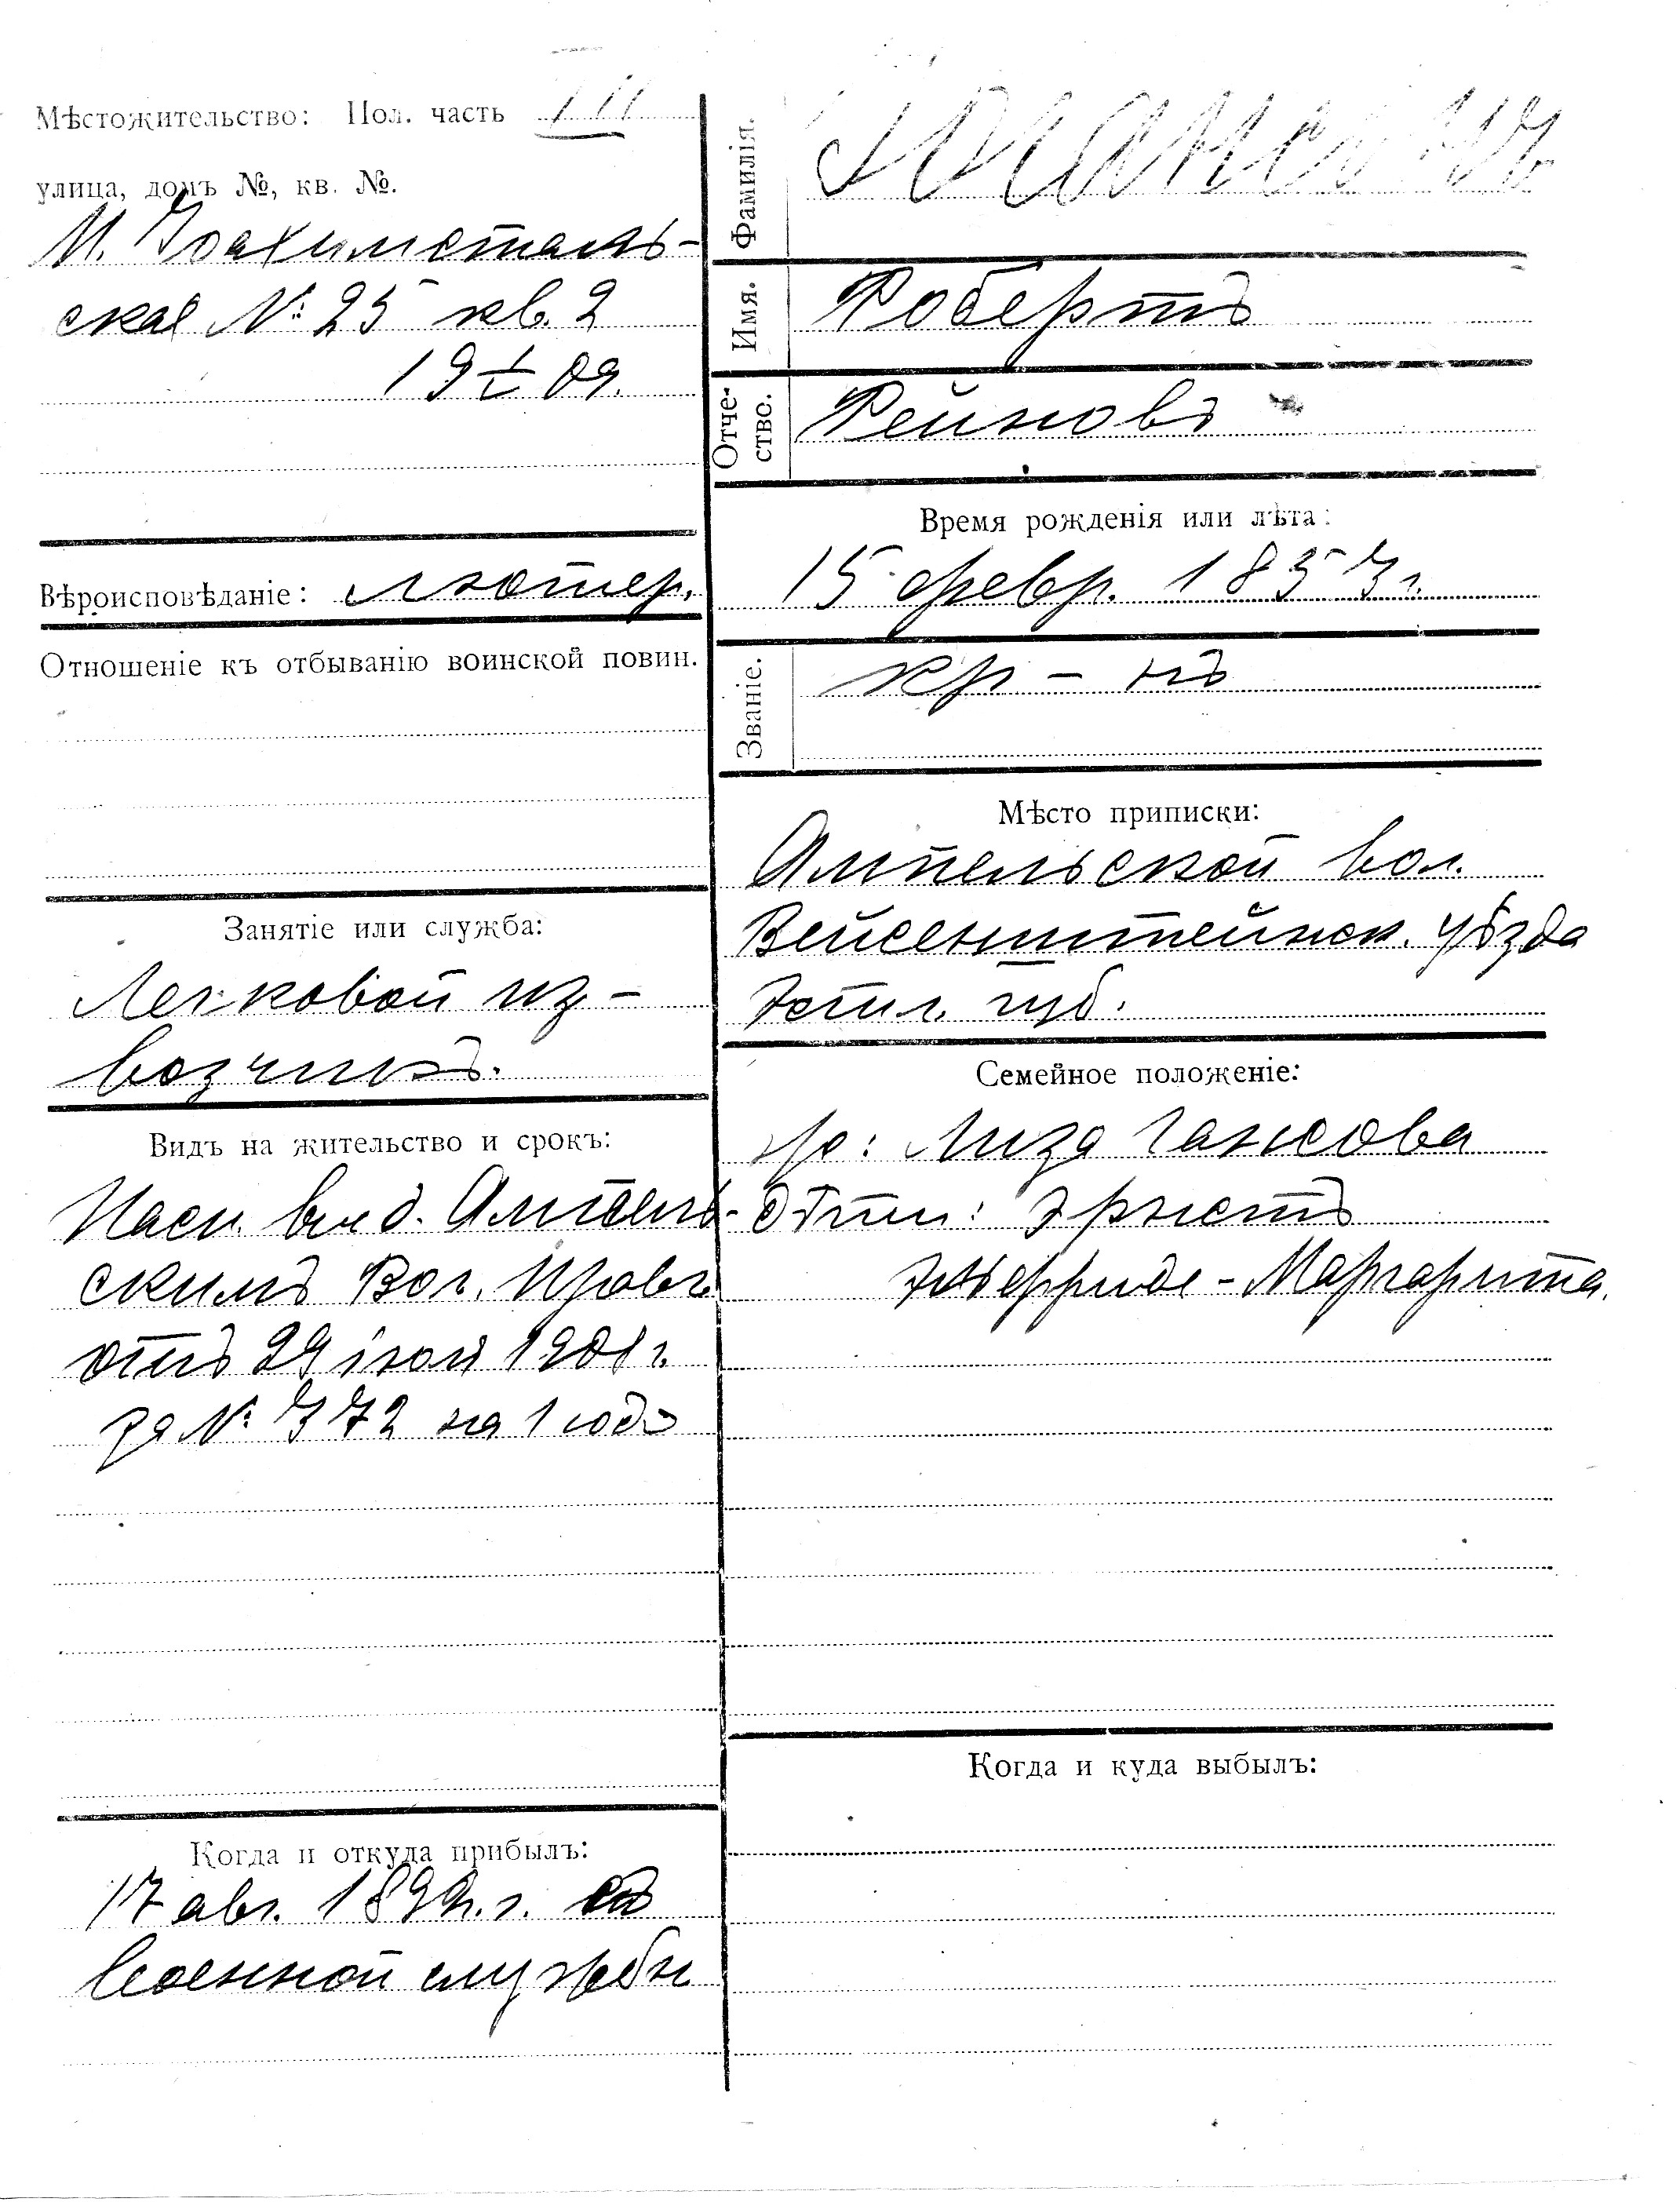 Мѣстожительство: Пол. часть III
улица, домъ №, кв. №.
М. Іоахимсталь-
ская № 25 кв. 2
19 I 09.
Вѣроисповѣданіе: лютер.
Отношеніе къ отбыванію воинской повин.
Занятіе или служба:
Легковой из-
возчикъ.
Видъ на жительство и срокъ:
Пасп. выд. Ампель-
скимъ Вол. Правл.
отъ 29 іюля 1908 г.
за № 372 на 1 годъ
Когда и откуда прибылъ:
17 авг. г. съ
военной службы
Фамилія.
Имя. Робертъ
Отче-
ство. Рейновъ
Время рожденія или лѣта:
15 февр. 1857 г.
Званіе. кр-нъ
Мѣсто приписки:
Ампельской вол.
Вейсенштейнск. уѣзда
Эстл. губ.
Семейное положеніе:
жр: Лиза Гансова
дѣти: Эрнстъ
-Маргарита.
Когда и куда выбылъ: